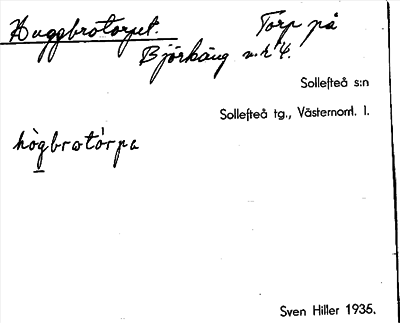 Huggbrotorpet. Torp på
Björkäng n.r 4.
Sollefteå s:n
Sollefteå tg., Västernorrl. l.
hògbrotórpa
Sven Hiller 1935.